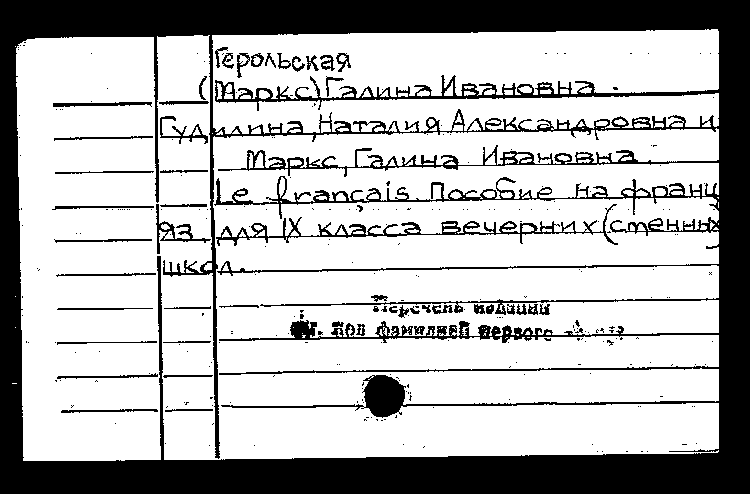 Герольская
(Маркс) Галина Ивановна.
Гудилина, Наталия Александровна и
Маркс, Галина Ивановна.
Le français. Пособие на франц
яз. для IX класса вечерних (сменных)
школ.
Перечень изданий
см. под фамилией первого